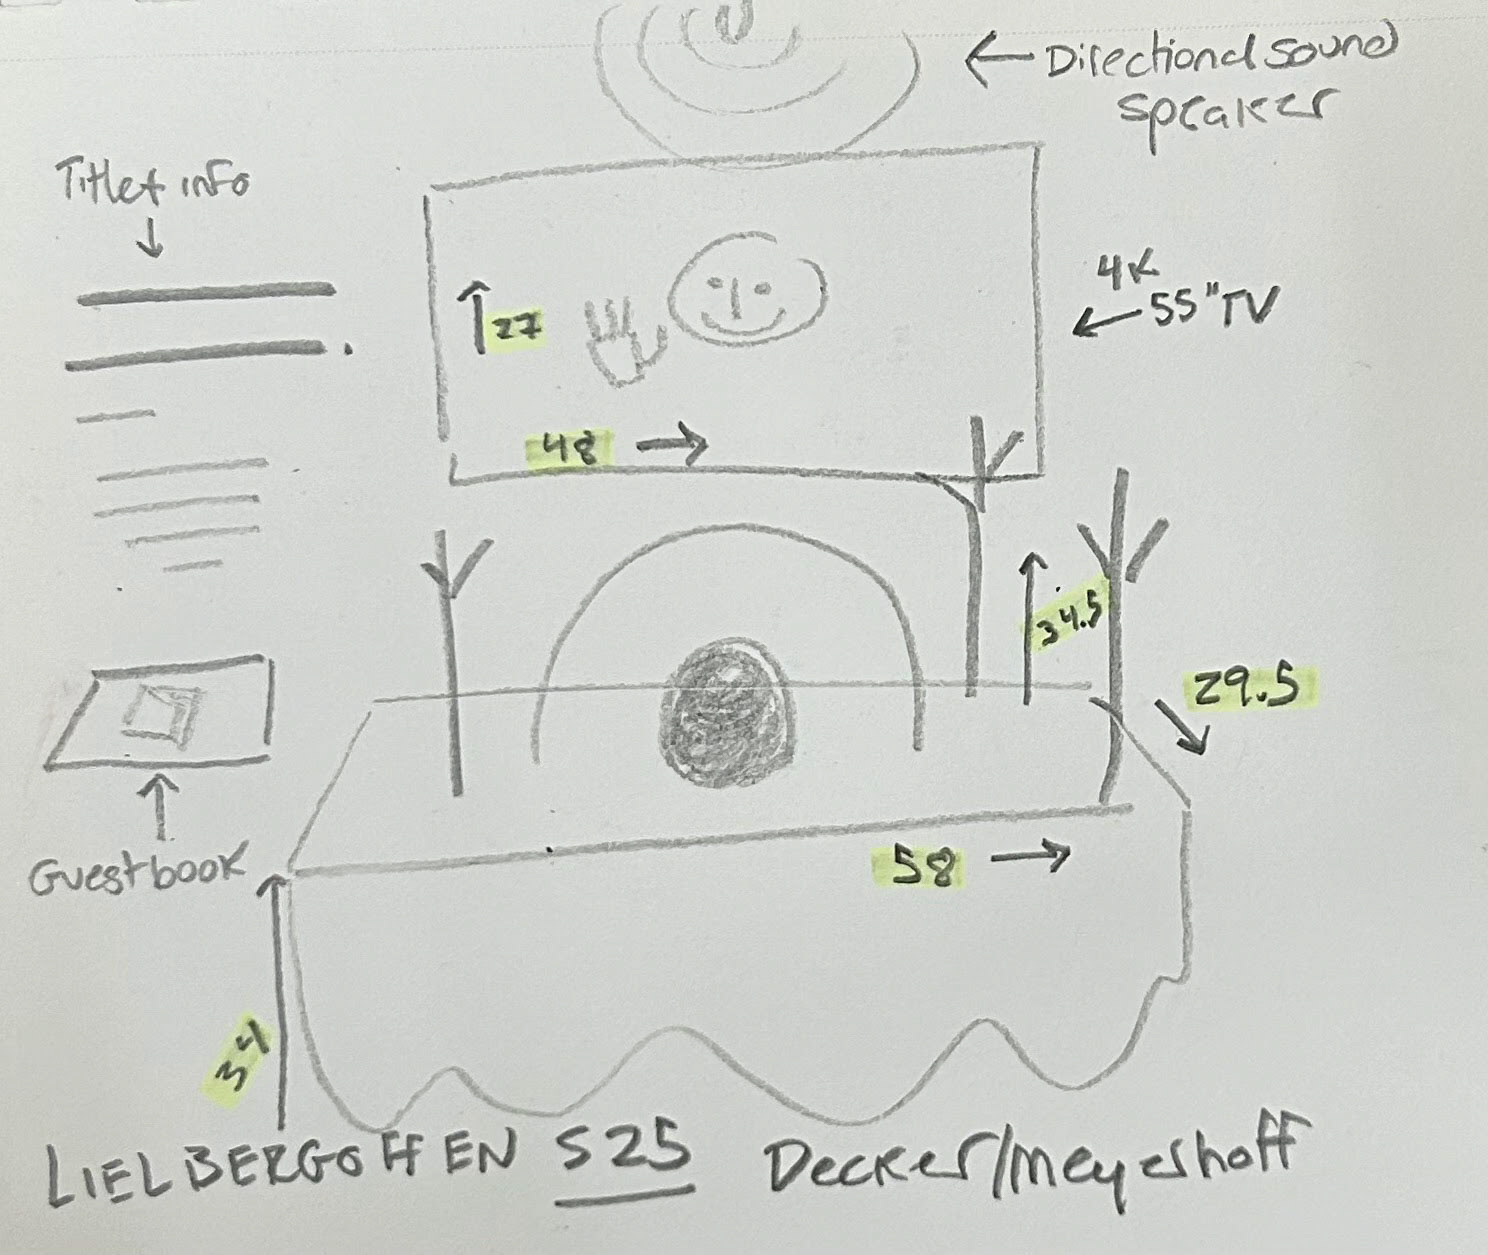 Directional sound
speaker
Title + info
4K
55" TV
27
48
34.5
29.5
Guestbook
58
34
LIELBERGOFFEN S25 Decker/Meyerhoff